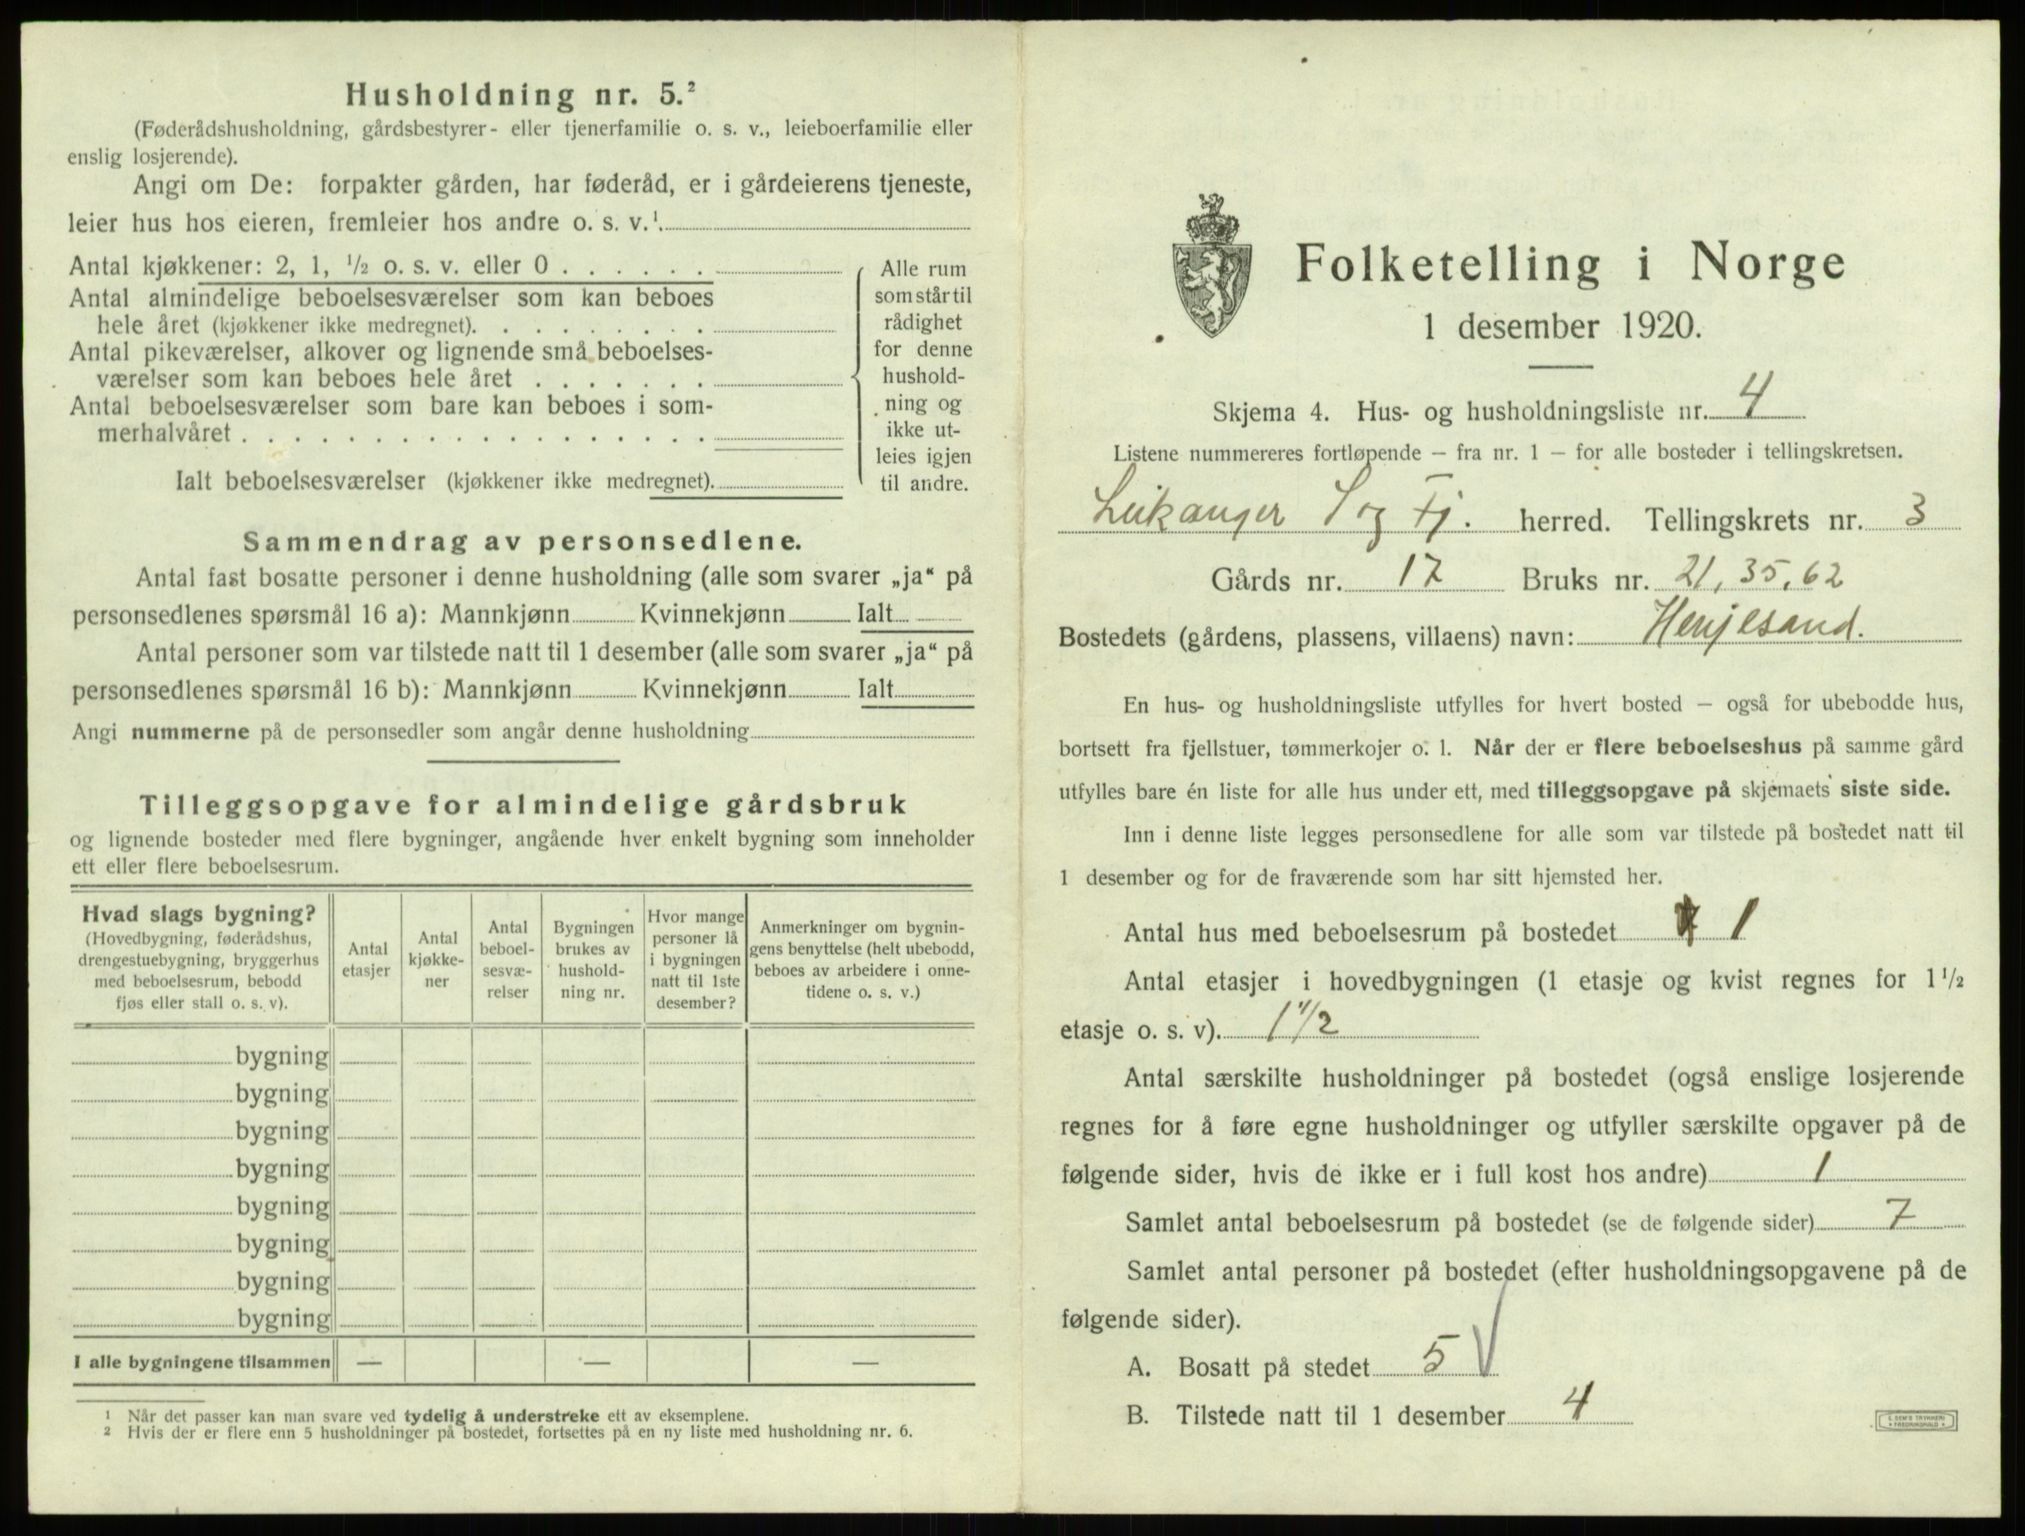 Husholdning nr. 5.²
(Føderådshusholdning, gårdsbestyrer- eller tjenerfamilie o. s. v., leieboerfamilie eller
enslig losjerende).
Angi om De: forpakter gården, har føderåd, er i gårdeierens tjeneste,
leier hus hos eieren, fremleier hos andre o. s. v.¹
Antal kjøkkener: 2, 1, ½ o. s. v. eller 0 . . . . . .
Antal almindelige beboelsesværelser som kan beboes
hele året (kjøkkener ikke medregnet). . . . . . . . .
Antal pikeværelser, alkover og lignende små beboelses-
værelser som kan beboes hele året . . . . . . .
Antal beboelsesværelser som bare kan beboes i som-
merhalvåret . . . . . . . . . . . . . . . . . .
Ialt beboelsesværelser (kjøkkener ikke medregnet).
Alle rum
som står til
rådighet
for denne
hushold-
ning og
ikke ut-
leies igjen
til andre.
Sammendrag av personsedlene.
Antal fast bosatte personer i denne husholdning (alle som svarer „ja“ på
personsedlenes spørsmål 16 a): Mannkjønn Kvinnekjønn Ialt
Antal personer som var tilstede natt til 1 desember (alle som svarer „ja“ på
personsedlenes spørsmål 16 b): Mannkjønn Kvinnekjønn Ialt
Angi nummerne på de personsedler som angår denne husholdning
Tilleggsopgave for almindelige gårdsbruk
og lignende bosteder med flere bygninger, angående hver enkelt bygning som inneholder
ett eller flere beboelsesrum.
Hvad slags bygning?
(Hovedbygning, føderådshus,
drengestuebygning, bryggerhus
med beboelsesrum, bebodd
fjøs eller stall o. s. v).
Antal
etasjer
Antal
kjøkke-
ner
Antal
beboel-
sesvæ-
relser
Bygningen
brukes av
hushold-
ning nr.
Hvor mange
personer lå
i bygningen
natt til 1ste
desember?
Anmerkninger om bygnin-
gens benyttelse (helt ubebodd,
beboes av arbeidere i onne-
tidene o. s. v.)
bygning
bygning
bygning
bygning
bygning
bygning
bygning
bygning
I alle bygningene tilsammen — — —
¹ Når det passer kan man svare ved tydelig å understreke ett av eksemplene.
² Hvis der er flere enn 5 husholdninger på bostedet, fortsettes på en ny liste med husholdning nr. 6.
Folketelling i Norge
1 desember 1920.
Skjema 4. Hus- og husholdningsliste nr. 4
Listene nummereres fortløpende – fra nr. 1 – for alle bosteder i tellingskretsen.
Leikanger Sog Fj. herred. Tellingskrets nr. 3
Gårds nr. 17 Bruks nr. 21, 35, 62
Bostedets (gårdens, plassens, villaens) navn: Henjesand.
En hus- og husholdningsliste utfylles for hvert bosted – også for ubebodde hus,
bortsett fra fjellstuer, tømmerkojer o. l. Når der er flere beboelseshus på samme gård
utfylles bare én liste for alle hus under ett, med tilleggsopgave på skjemaets siste side.
Inn i denne liste legges personsedlene for alle som var tilstede på bostedet natt til
1 desember og for de fraværende som har sitt hjemsted her.
Antal hus med beboelsesrum på bostedet 1
Antal etasjer i hovedbygningen (1 etasje og kvist regnes for 1 ½
etasje o. s. v). 1 ½
Antal særskilte husholdninger på bostedet (også enslige losjerende
regnes for å føre egne husholdninger og utfyller særskilte opgaver på de
følgende sider, hvis de ikke er i full kost hos andre) 1
Samlet antal beboelsesrum på bostedet (se de følgende sider) 7
Samlet antal personer på bostedet (efter husholdningsopgavene på de
følgende sider).
A. Bosatt på stedet 5
B. Tilstede natt til 1 desember 4
E. SEM'S TRYKKERI
FREDRIKSHALD